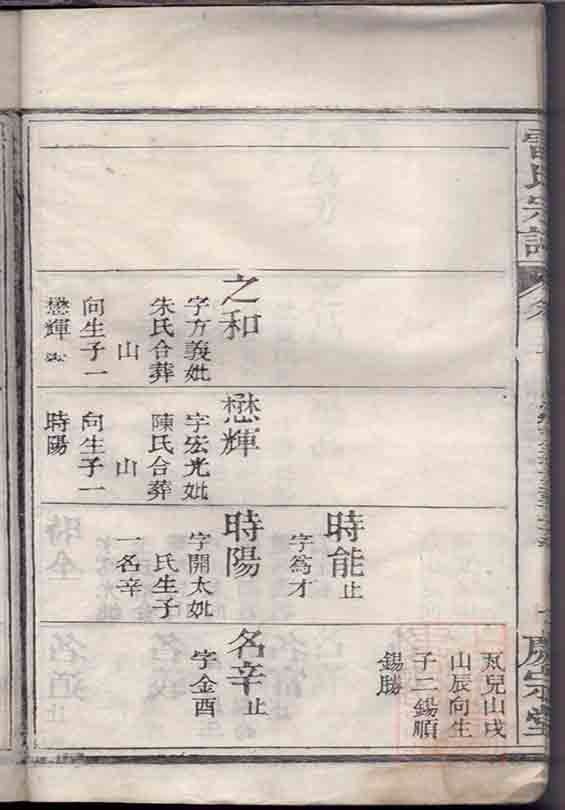 雷氏宗譜
慶宗堂
之和
字方義妣
朱氏合葬
山
向生子一
懋輝
懋輝
字宏光妣
陳氏合葬
山
向生子一
時陽
時能止
字爲才
時陽
字開太妣
氏生子
一名辛
兒山戌
山辰向生
子二錫順
錫勝
名辛止
字金酉